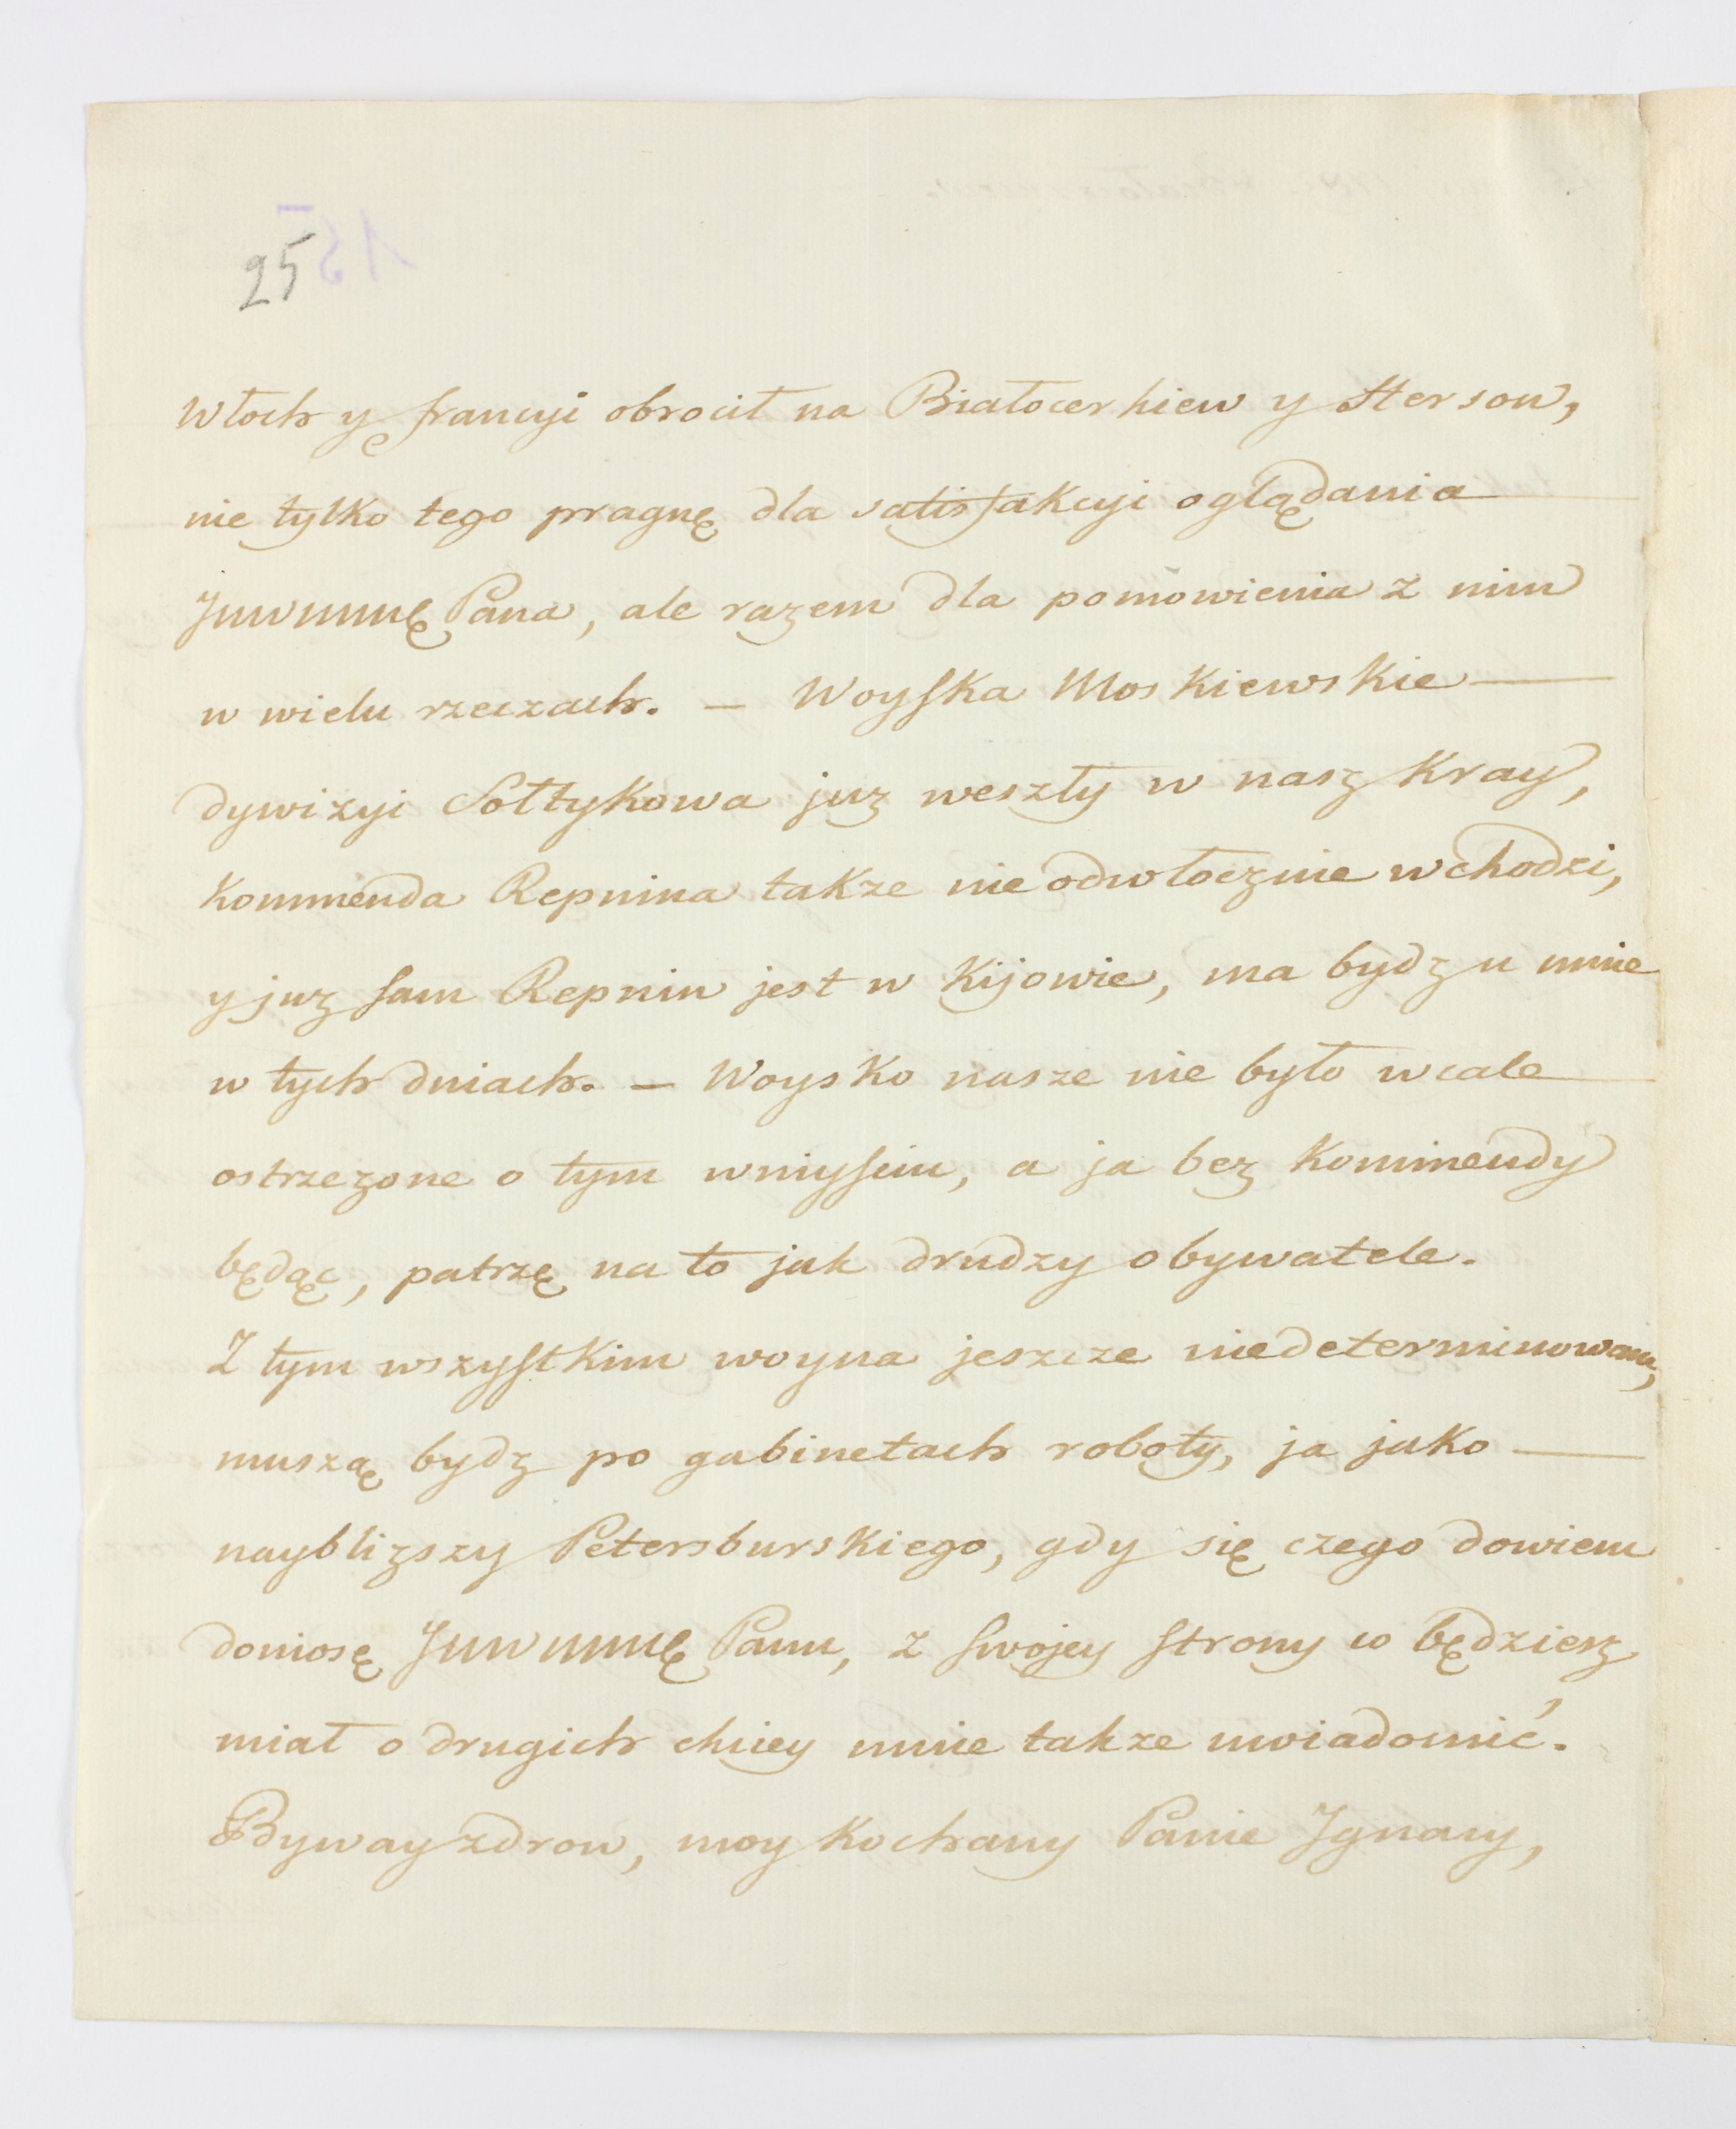 25
Włoch y francyi obrocił na Białocerkiew y Herson,
nie tylko tego pragnę dla satisfakcyi oglądania
Pana, ale razem dla pomowienia z nim
w wielu rzeczach. — Woyska Moskiewskie —
dywizyi Sołtykowa juz weszły w nasz Kray,
Kommenda Repnina takze nieodwłocznie wchodzi,
y juz sam Repnin jest w Kijowie, ma bydz u mnie
w tych dniach. — Woysko nasze nie było wcale
ostrzezone o tym wniysciu, a ja bez Kommendy
będąc, patrzę na to jak drudzy obywatele.
Z tym wszystkim woyna jeszcze niedeterminowana,
muszą bydz po gabinetach roboty, ja jako —
nayblizszy Petersburskiego, gdy się czego dowiem
doniosę Panu, z swojey strony co będziesz
miał o drugich chciey mnie takze uwiadomić.
Byway zdrow, moy Kochany Panie Ignacy,